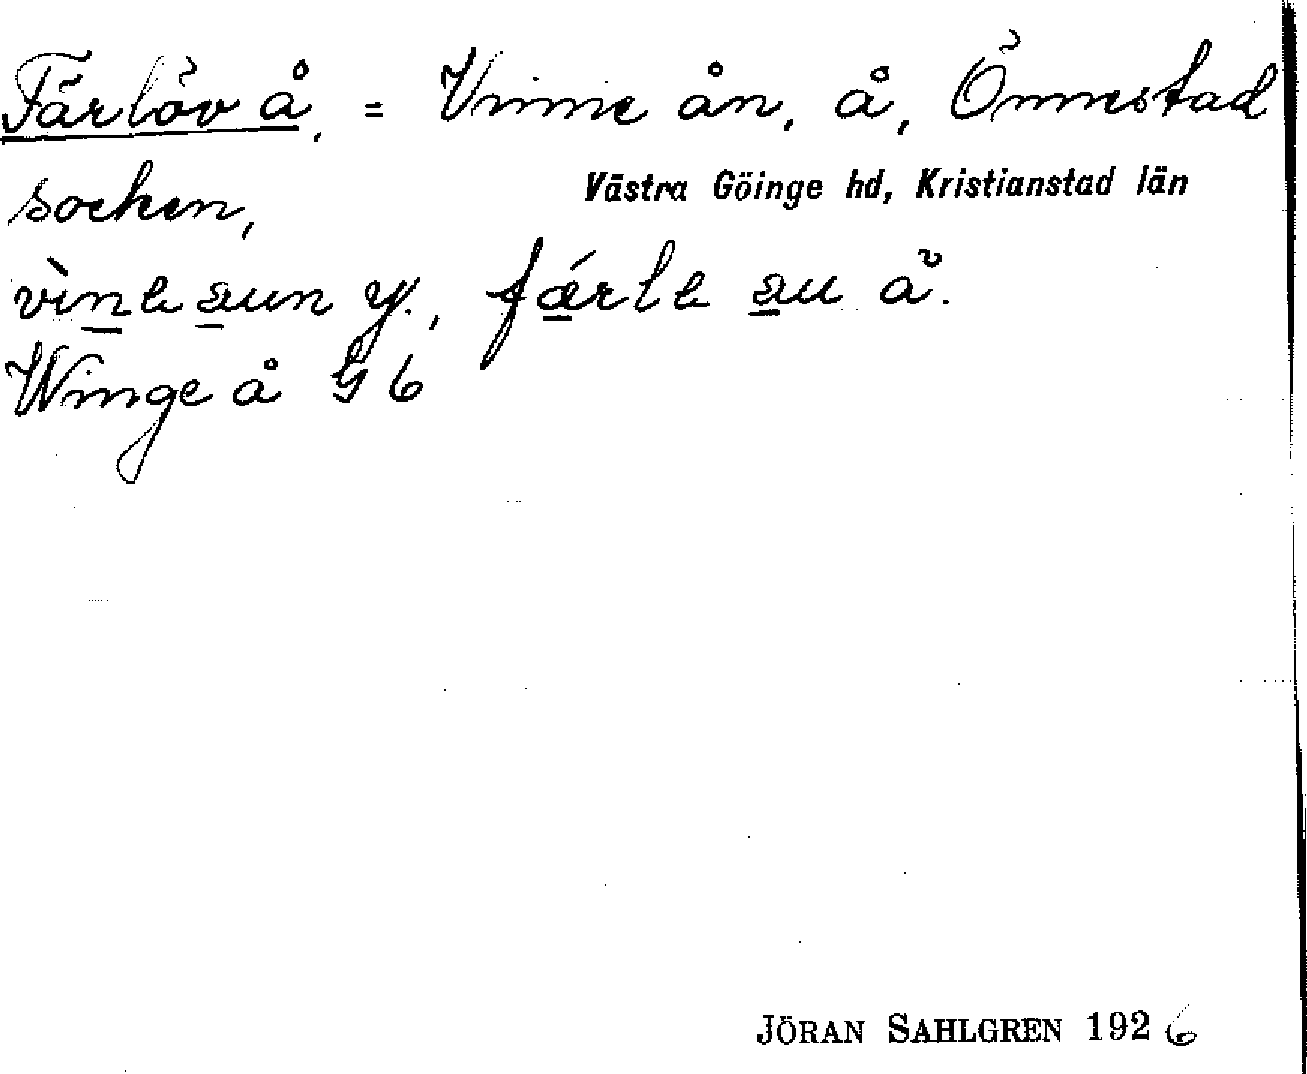 Färlöv å, = Vinne ån, å, Önnestad
socken, Västra Göinge hd, Kristianstad län
vìne aun y., færle au å.
Winge å G 6
JÖRAN SAHLGREN 1926